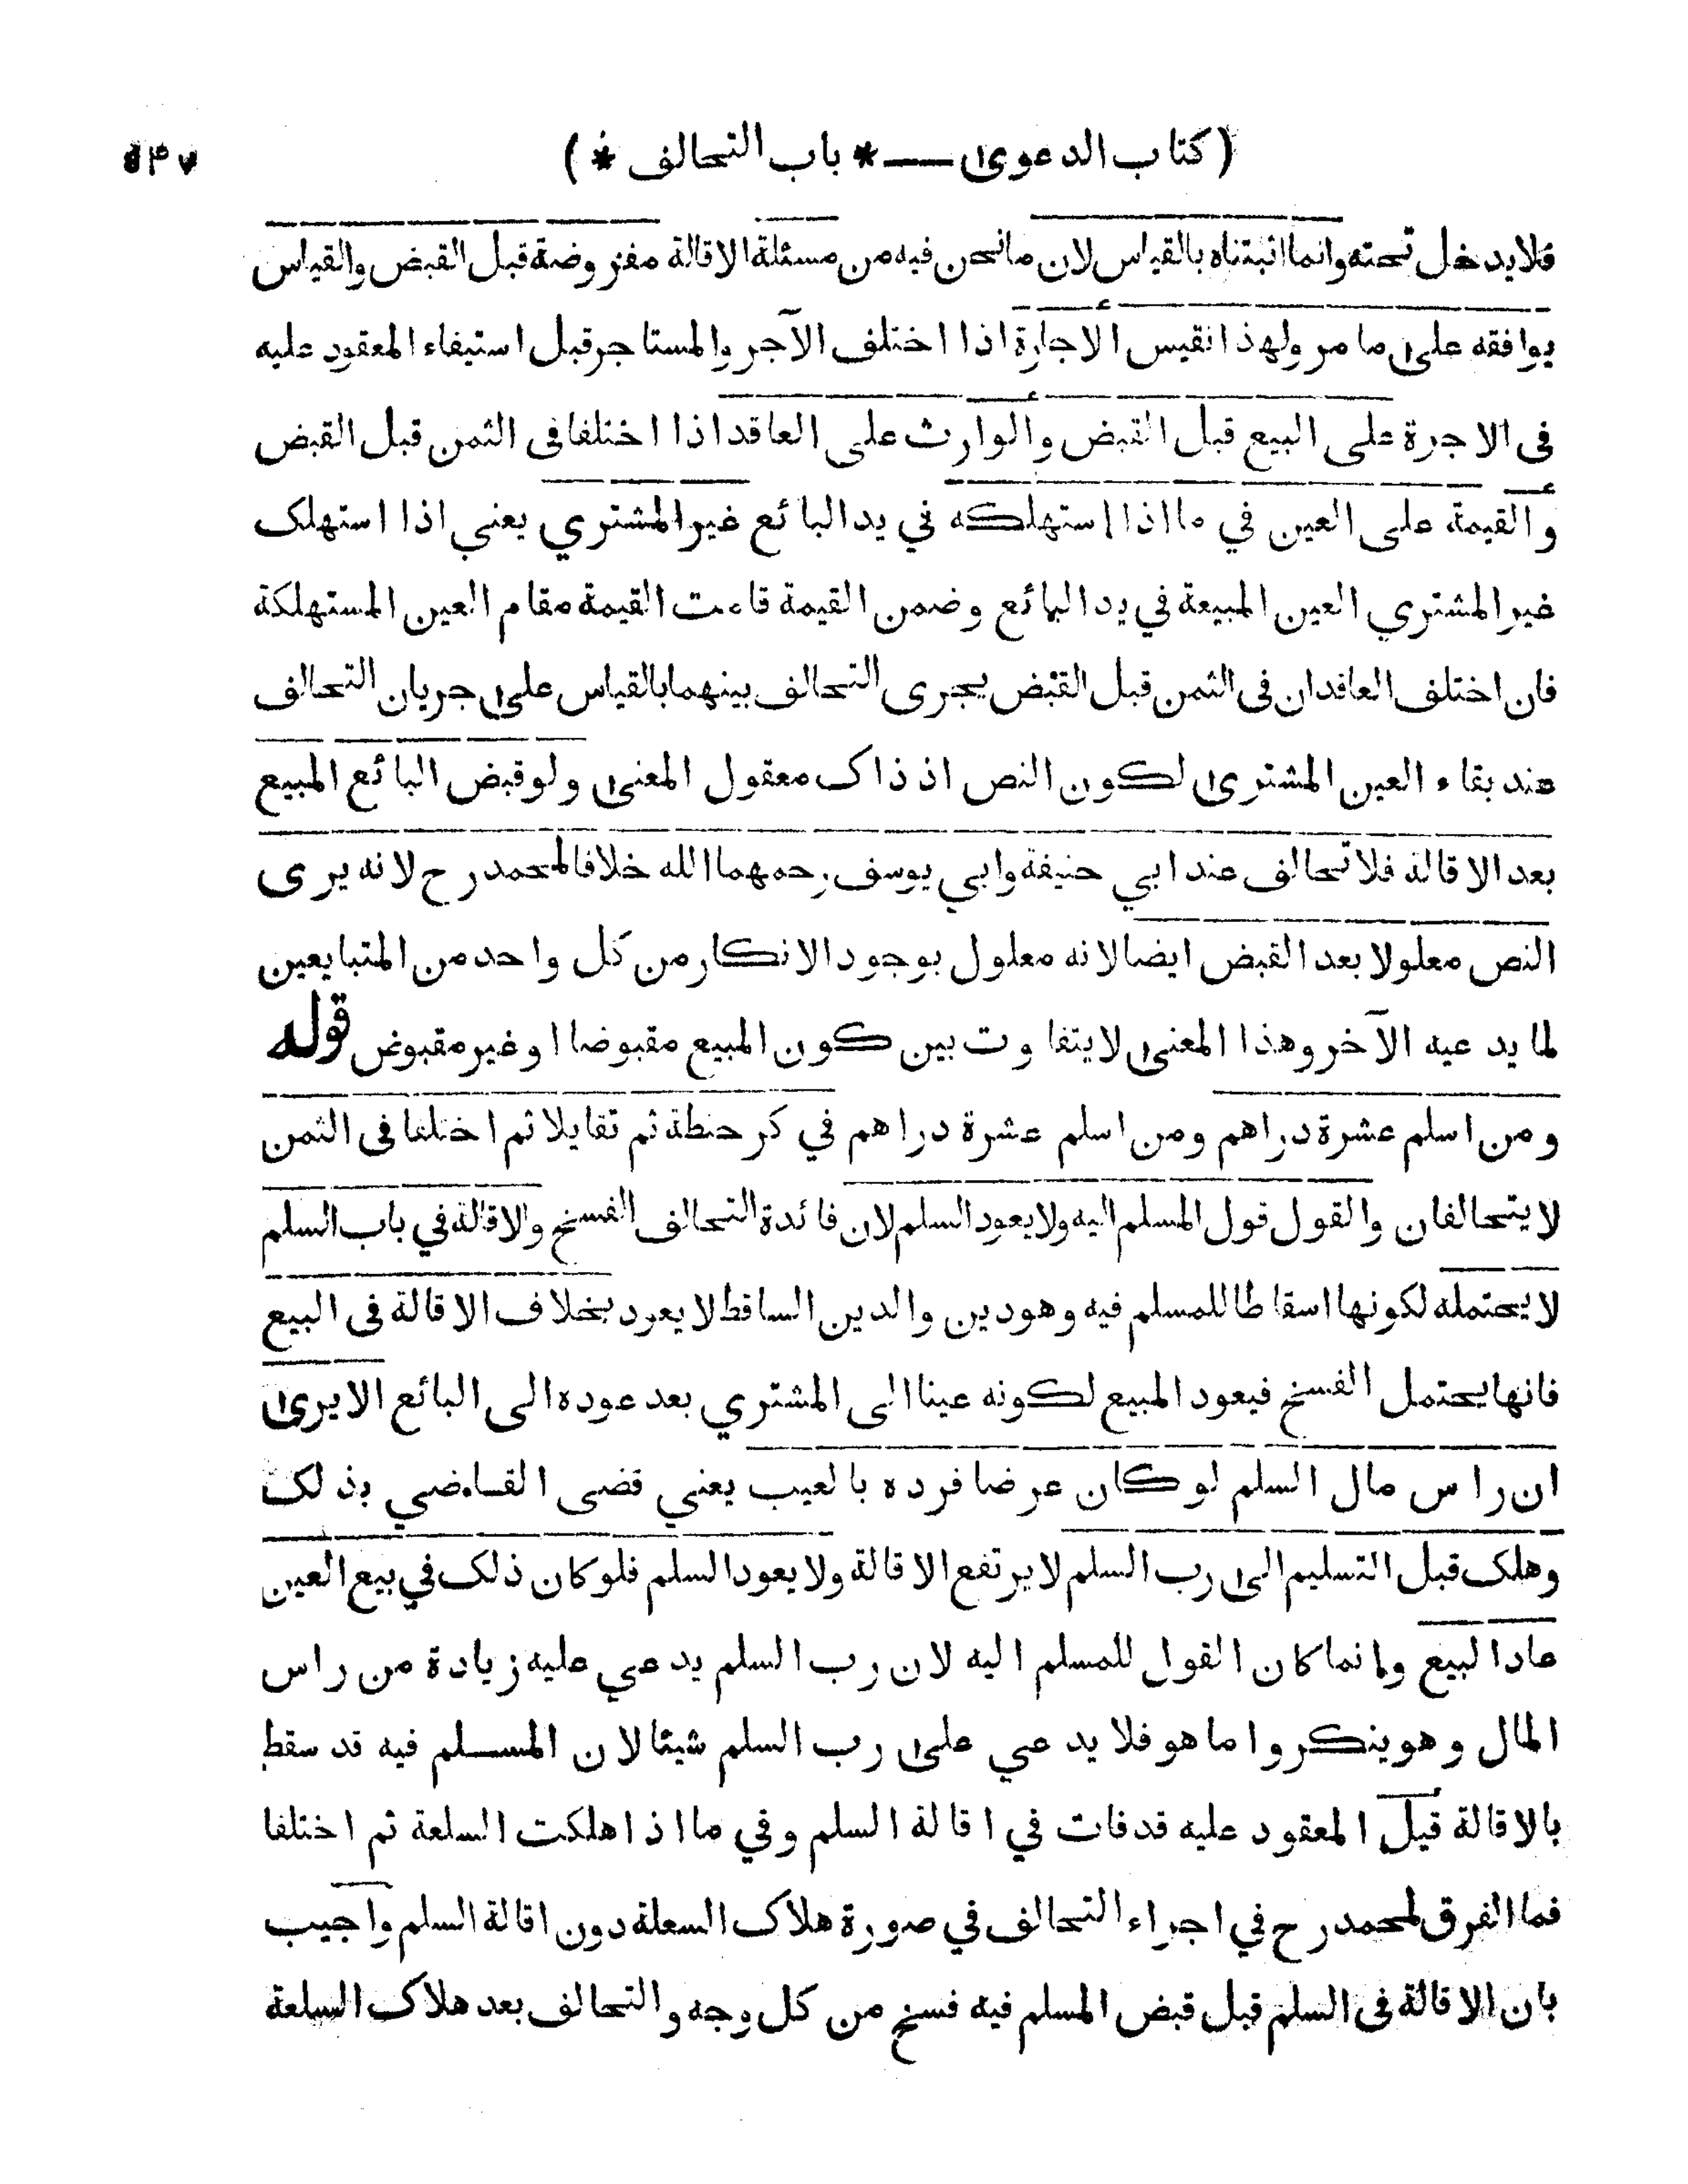 (كتاب الدعوى — * باب التحالف *) ٥٣٧
فلا يدخل تحته وانما اثبتناه بالقياس لان ما نحن فيه من مسئلة الاقالة مفروضة قبل القبض والقياس
يوافقه على ما مر ولهذا نقيس الاجارة اذا اختلف الآجر والمستاجر قبل استيفاء المعقود عليه
فى الاجرة على البيع قبل القبض والوارث على العاقد اذا اختلفا فى الثمن قبل القبض
والقيمة على العين في ما اذا استهلكه في يد البائع غير المشتري يعني اذا استهلک
غير المشتري العين المبيعة في يد البائع وضمن القيمة قامت القيمة مقام العين المستهلكة
فان اختلف العاقدان فى الثمن قبل القبض يجرى التحالف بينهما بالقياس على جريان التحالف
عند بقاء العين المشترى لكون النص اذ ذاک معقول المعنى ولو قبض البائع المبيع
بعد الاقالة فلا تحالف عند ابي حنيفة وابي يوسف رحمهما الله خلافا لمحمد رح لانه يرى
النص معلولا بعد القبض ايضا لانه معلول بوجود الانكار من كل واحد من المتبايعين
لما يدعيه الآخر وهذا المعنى لا يتفاوت بين كون المبيع مقبوضا او غير مقبوض قوله
ومن اسلم عشرة دراهم ومن اسلم عشرة دراهم في كر حنطة ثم تقايلا ثم اختلفا فى الثمن
لا يتحالفان والقول قول المسلم اليه ولا يعود السلم لان فائدة التحالف الفسخ والاقالة في باب السلم
لا يحتمله لكونها اسقاطا للمسلم فيه وهو دين والدين الساقط لا يعود بخلاف الاقالة فى البيع
فانها يحتمل الفسخ فيعود المبيع لكونه عينا الى المشتري بعد عوده الى البائع الا يرى
ان راس مال السلم لو كان عرضا فرده بالعيب يعني قضى القاضي بذلک
وهلک قبل التسليم الى رب السلم لا يرتفع الاقالة ولا يعود السلم فلو كان ذلک في بيع العين
عاد البيع وانما كان القول للمسلم اليه لان رب السلم يدعي عليه زيادة من راس
المال وهو ينكر واما هو فلا يدعي على رب السلم شيئا لان المسلم فيه قد سقط
بالاقالة قيل المعقود عليه قد فات في اقالة السلم وفي ما اذا هلكت السلعة ثم اختلفا
فما الفرق لمحمد رح في اجراء التحالف في صورة هلاک السعلة دون اقالة السلم واجيب
بان الاقالة فى السلم قبل قبض المسلم فيه فسخ من كل وجه والتحالف بعد هلاک السلعة